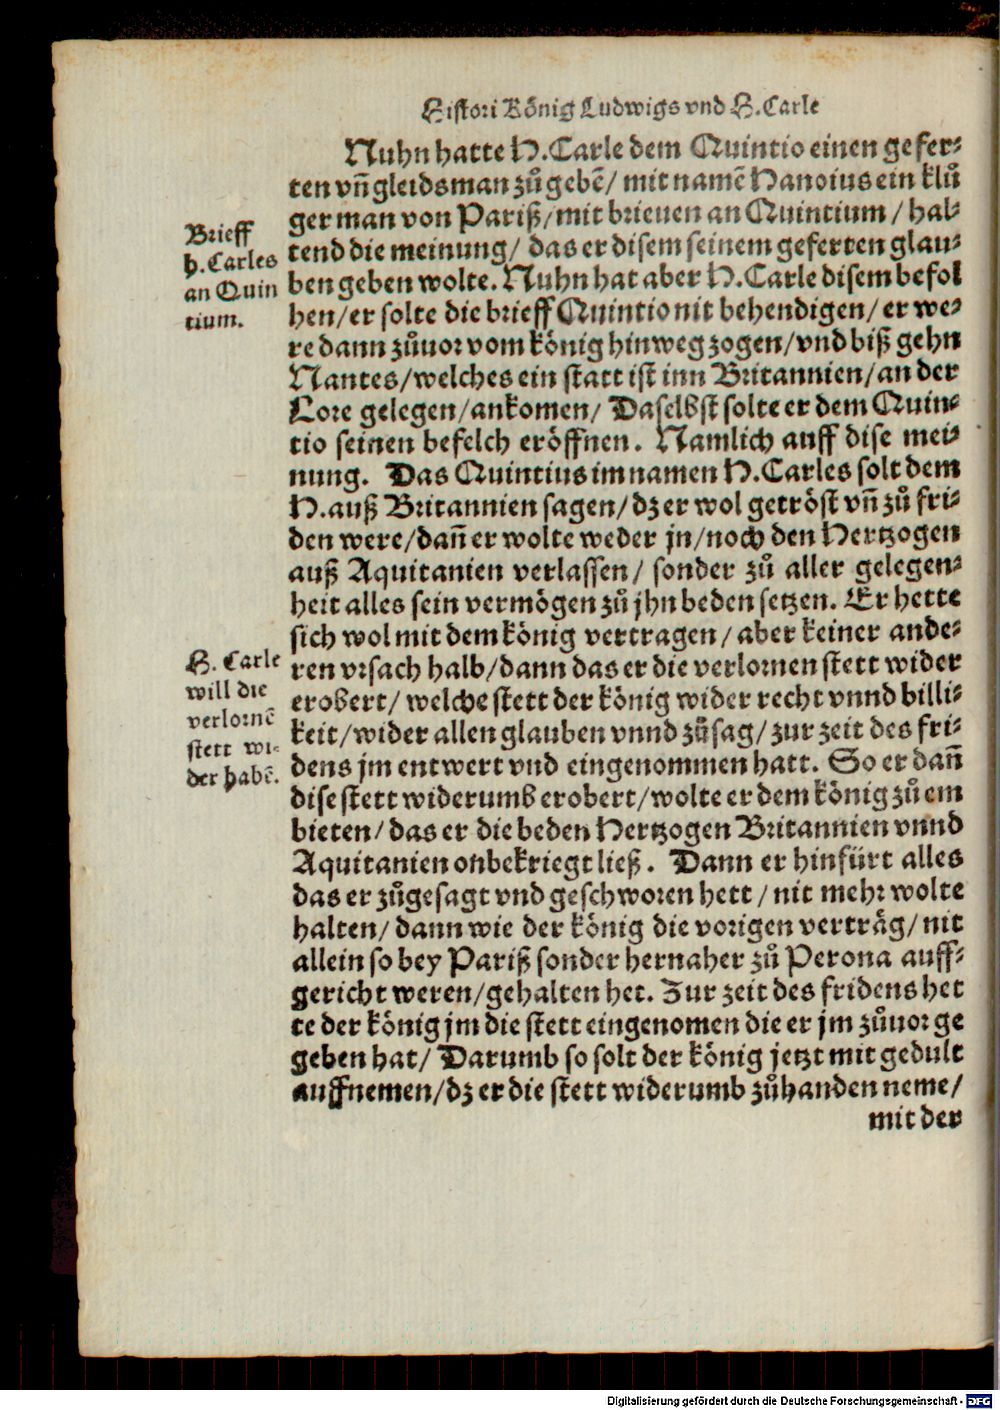 Histori König Ludwigs vnd H. Carle
Nuhn hatte H. Carle dem Quintio einen gefer-
ten vñ gleidsman zů gebẽ/ mit namẽ Hanoius ein klů
ger man von Pariß/ mit brieuen an Quintium/ hal-
tend die meinung/ das er disem seinem geferten glau-
ben geben wolte. Nuhn hat aber H. Carle disem befol
hen/ er solte die brieff Quintio nit behendigen/ er we-
re dann zůuor vom könig hinweg zogen/ vnd biß gehn
Nantes/ welches ein statt ist inn Britannien/ an der
Lore gelegen/ ankomen/ Daselbst solte er dem Quin-
tio seinen befelch eröffnen. Namlich auff dise mei-
nung. Das Quintius im namen H. Carles solt dem
H. auß Britannien sagen/ dz er wol getröst vñ zů fri-
den were/ dañ er wolte weder jn/ noch den Hertzogen
auß Aquitanien verlassen/ sonder zů aller gelegen-
heit alles sein vermögen zů jhn beden setzen. Er hette
sich wol mit dem könig vertragen/ aber keiner ande-
ren vrsach halb/ dann das er die verlornen stett wider
erobert/ welche stett der könig wider recht vnnd billi-
keit/ wider allen glauben vnnd zůsag/ zur zeit des fri-
dens jm entwert vnd eingenommen hatt. So er dañ
dise stett widerumb erobert/ wolte er dem könig zů em
bieten/ das er die beden Hertzogen Britannien vnnd
Aquitanien onbekriegt ließ. Dann er hinfürt alles
das er zůgesagt vnd geschworen hett/ nit mehr wolte
halten/ dann wie der könig die vorigen verträg/ nit
allein so bey Pariß sonder hernaher zů Perona auff-
gericht weren/ gehalten het. Zur zeit des fridens het
te der könig jm die stett eingenomen die er jm zůuor ge
geben hat/ Darumb so solt der könig jetzt mit gedult
auffnemen/ dz er die stett widerumb zůhanden neme/
mit der
Brieff
h. Carles
an Quin
tium.
H. Carle
will die
verlornẽ
stett wi-
der habẽ.
Digitalisierung gefördert durch die Deutsche Forschungsgemeinschaft - DFG